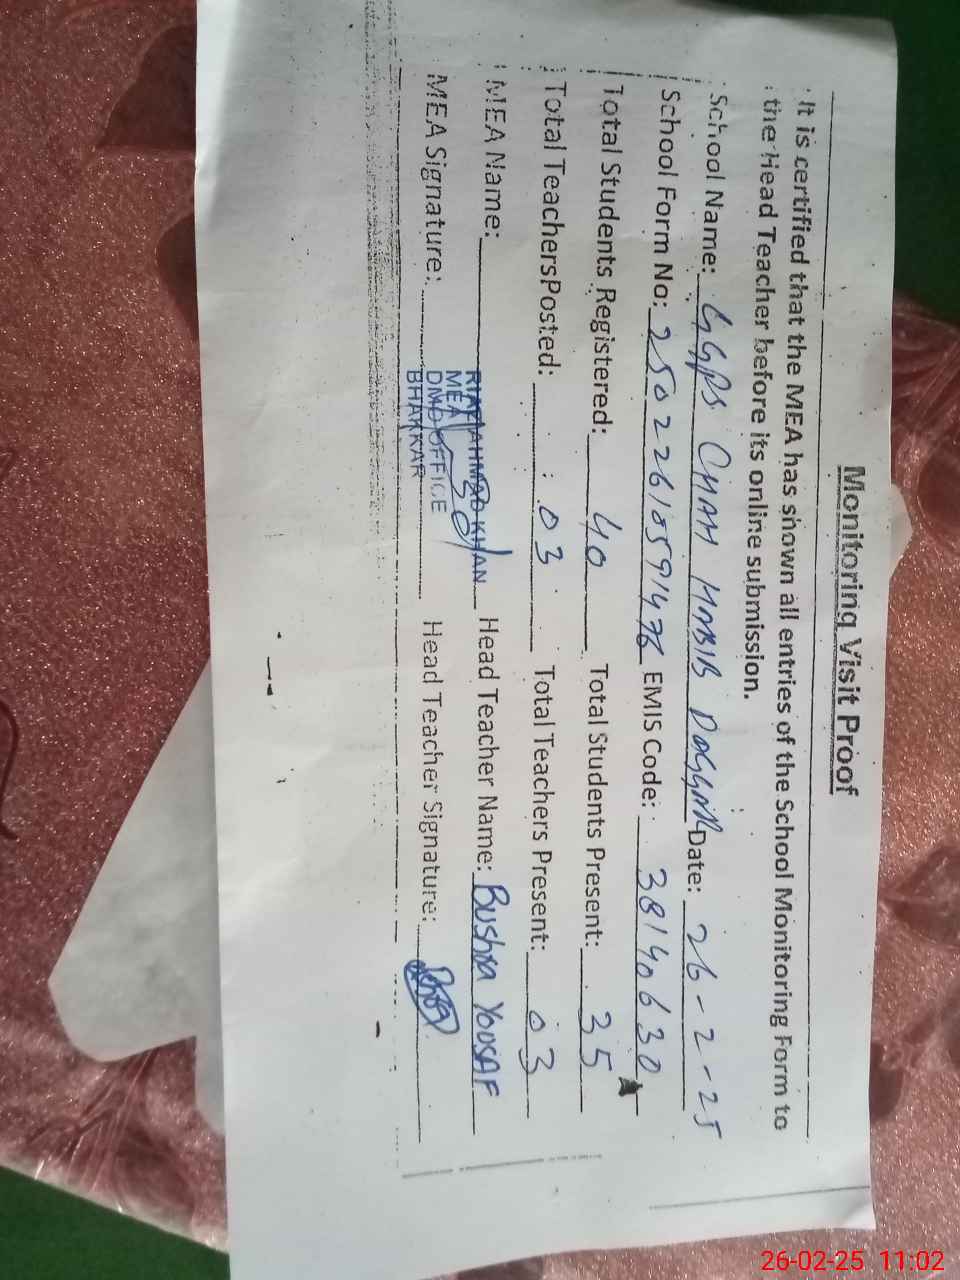 Monitoring Visit Proof
It is certified that the MEA has shown all entries of the School Monitoring Form to
the Head Teacher before its online submission.
School Name: GGPS CHAH HABIB DAGGAR Date: 26-2-25
School Form No: 25022610591476 EMIS Code: 38140630
Total Students Registered: 40 Total Students Present: 35
Total TeachersPosted: 03 Total Teachers Present: 03
MEA Name: RIAZ AHMAD KHAN Head Teacher Name: Bushra YOUSAF
MEA
DMO OFFICE
BHAKKAR
MEA Signature: Head Teacher Signature:
26-02-25 11:02